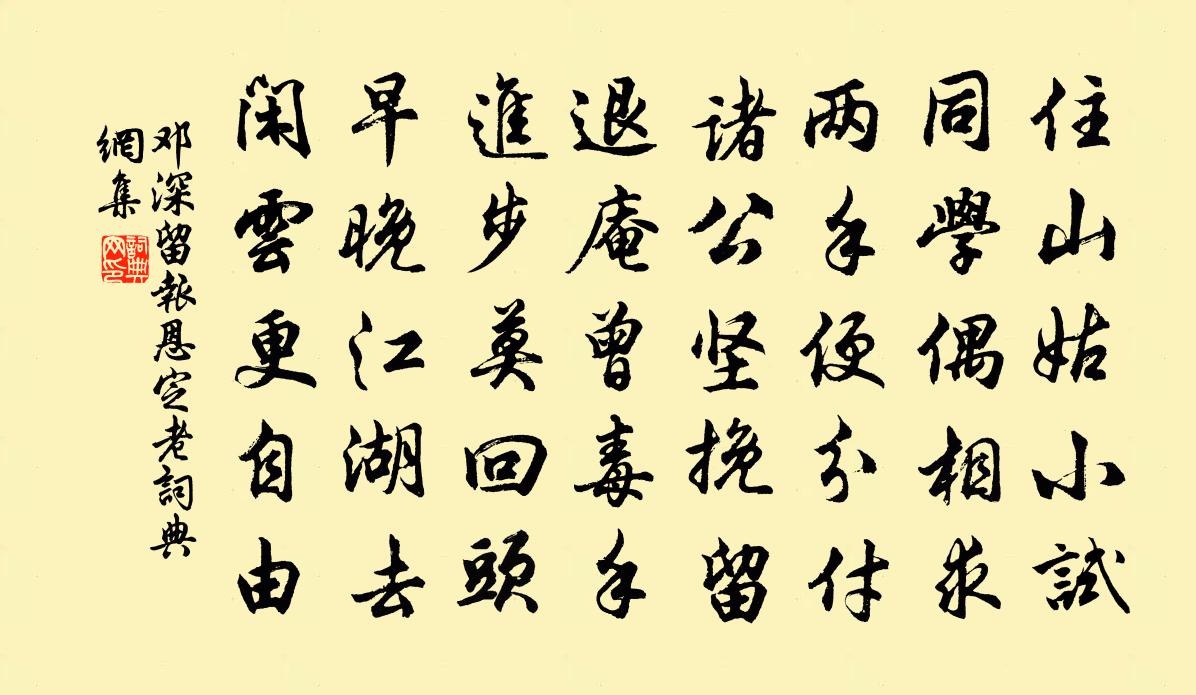 住山姑小試
同學偶相求
两手便分付
诸公坚挽留
退庵曾毒手
進步莫回頭
早晚江湖去
闲雲更自由
邓深留報恩定老詞典
網集
詞典
网印